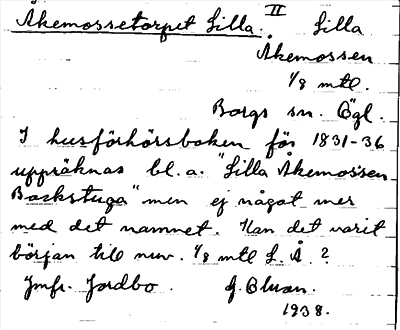 Åkemossetorpet Lilla. II Lilla
Åkemossen
1/8 mtl.
Borgs sn. Ögl.
I husförhörsboken för 1831-36
uppräknas bl.a. "Lilla Åkemossen
Backstuga" men ej något mer
med det namnet. Kan det varit
början till nuv. 1/8 mtl L. Å ?
Jmfr. Jordbo. G.
1938.